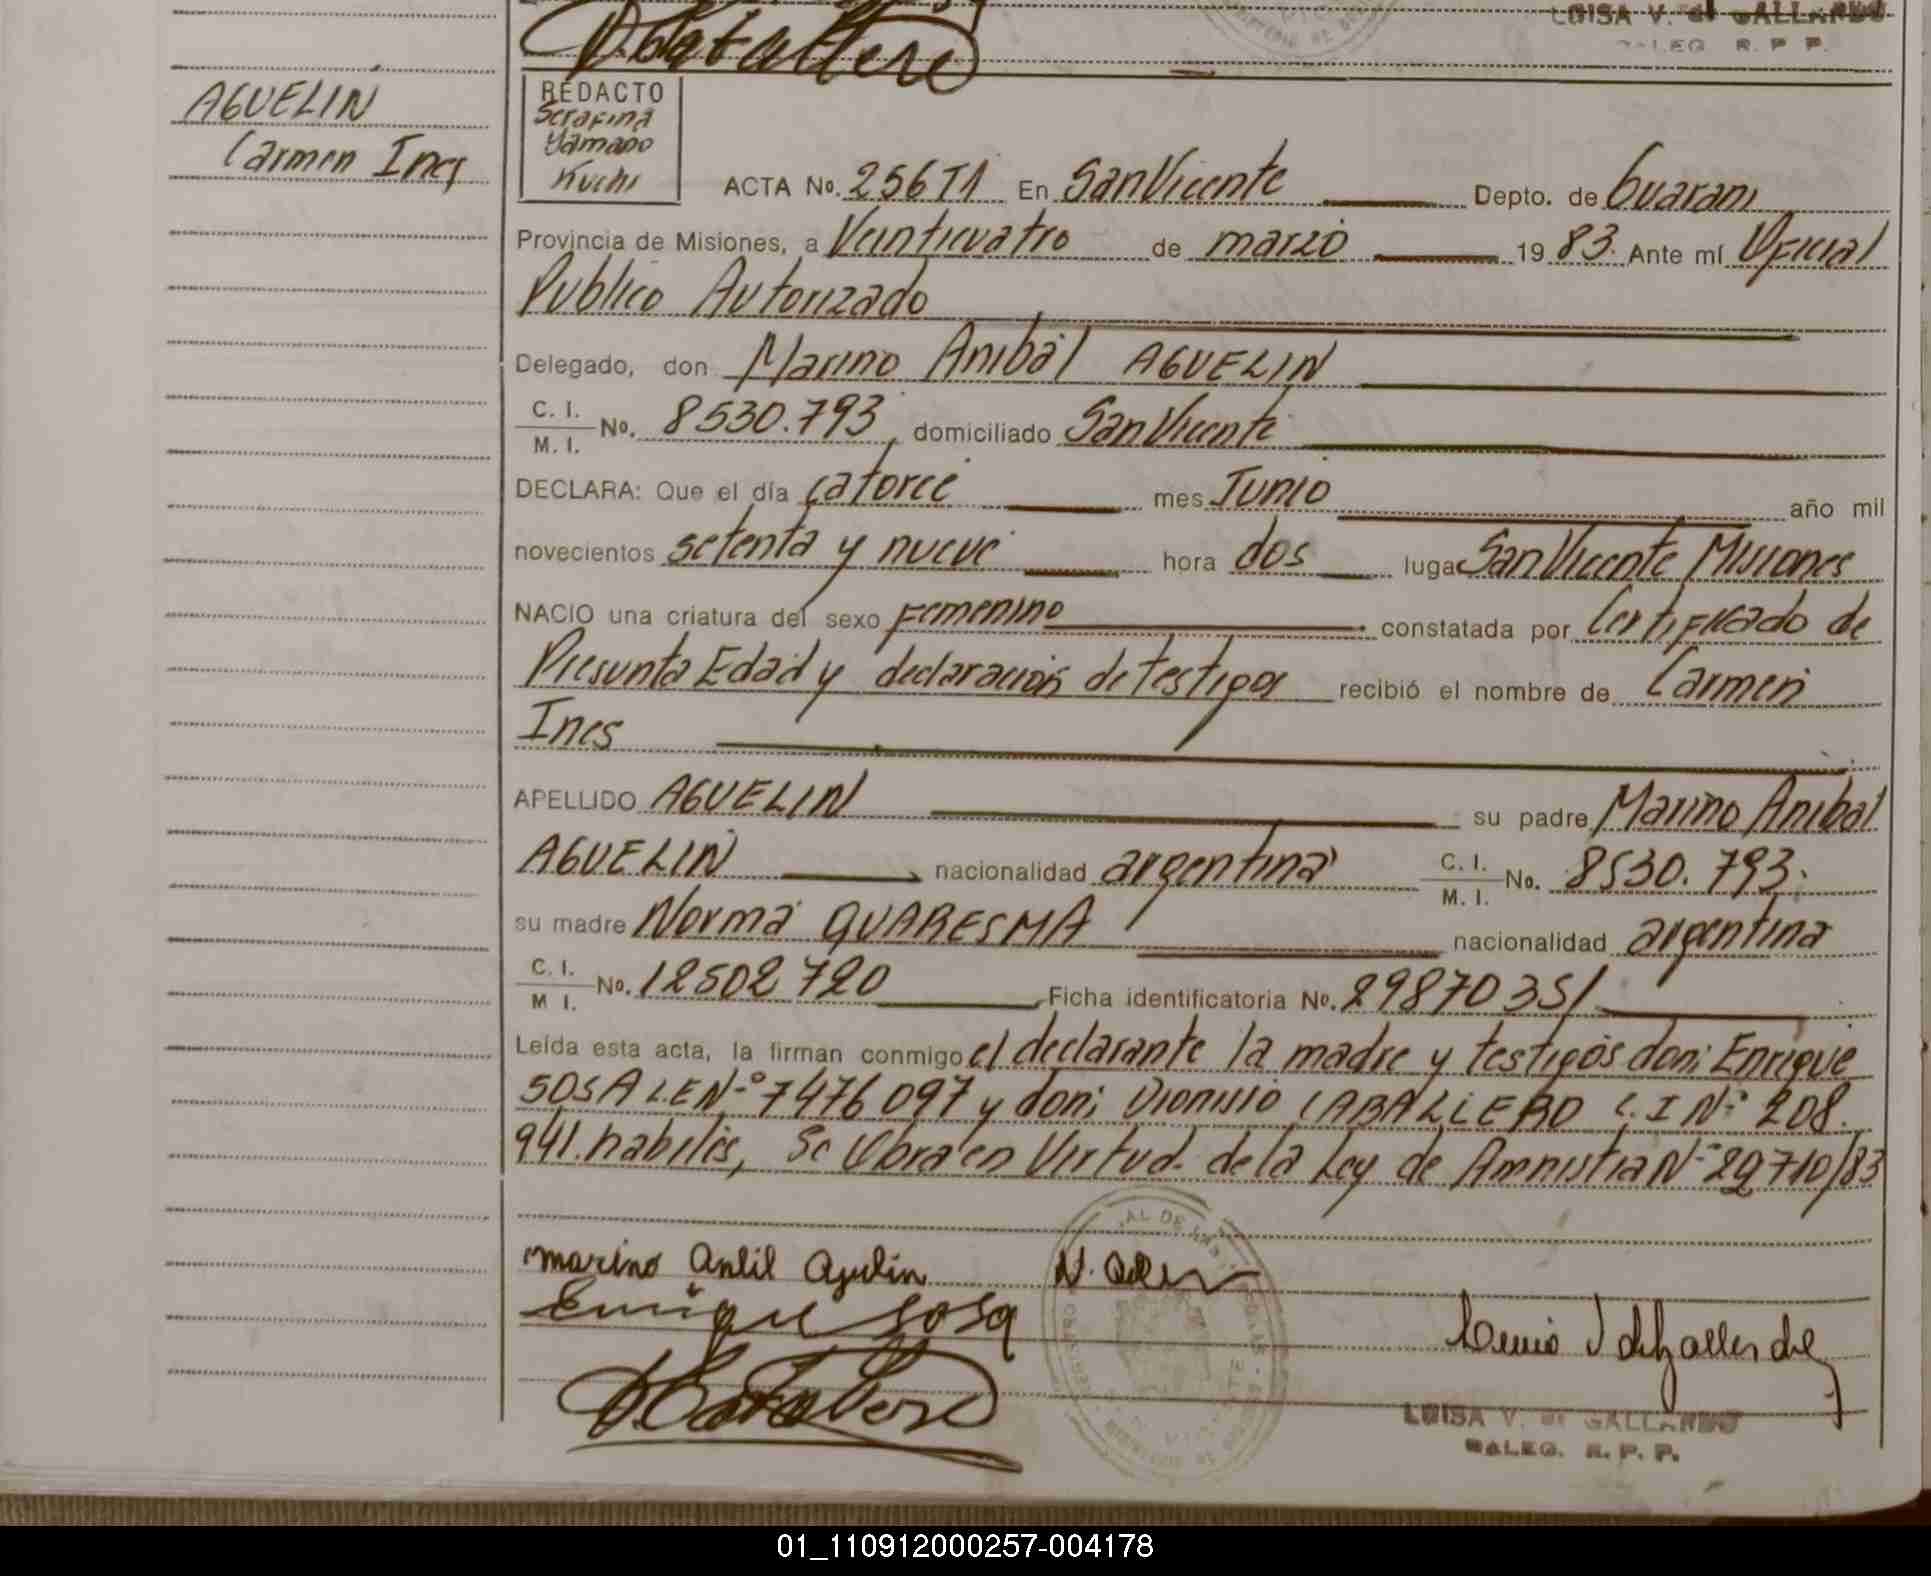 LUISA V. de GALLARDO
DELEG. R. P. P.
AGUELIN
Carmen Ines
REDACTO
Serafina
Yamaoo
Kuchi
ACTA No. 256T1 En San Vicente Depto. de Guarani
Provincia de Misiones, a Veinticuatro de marzo 19 83. Ante mí Oficial
Publico Autorizado
Delegado, don Marino Anibal AGUELIN
C. I.
M. I. No. 8530.793, domiciliado San Vicente
DECLARA: Que el día catorce mes Junio año mil
novecientos setenta y nueve hora dos lugar San Vicente Misiones
NACIO una criatura del sexo Femenino constatada por Certificado de
Presunta Edad y declaración de testigos recibió el nombre de Carmen
Ines
APELLIDO AGUELIN su padre Marino Anibal
AGUELIN nacionalidad argentina C. I.
M. I. No. 8530.793.
su madre Norma QUARESMA nacionalidad argentina
C. I.
M I. No. 12502720 Ficha identificatoria No. 29870351
Leída esta acta, la firman conmigo el declarante la madre y testigos don: Enrique
SOSA L.E N° 7476097 y don: Dionisio CABALLERO C.I N° 208.
941. habiles, Se Obra en Virtud de la Ley de Amnistia N° 22710/83
marino Aguelin
Enrique Sosa
LUISA V. de GALLARDO
DELEG. R. P. P.
01_110912000257-004178